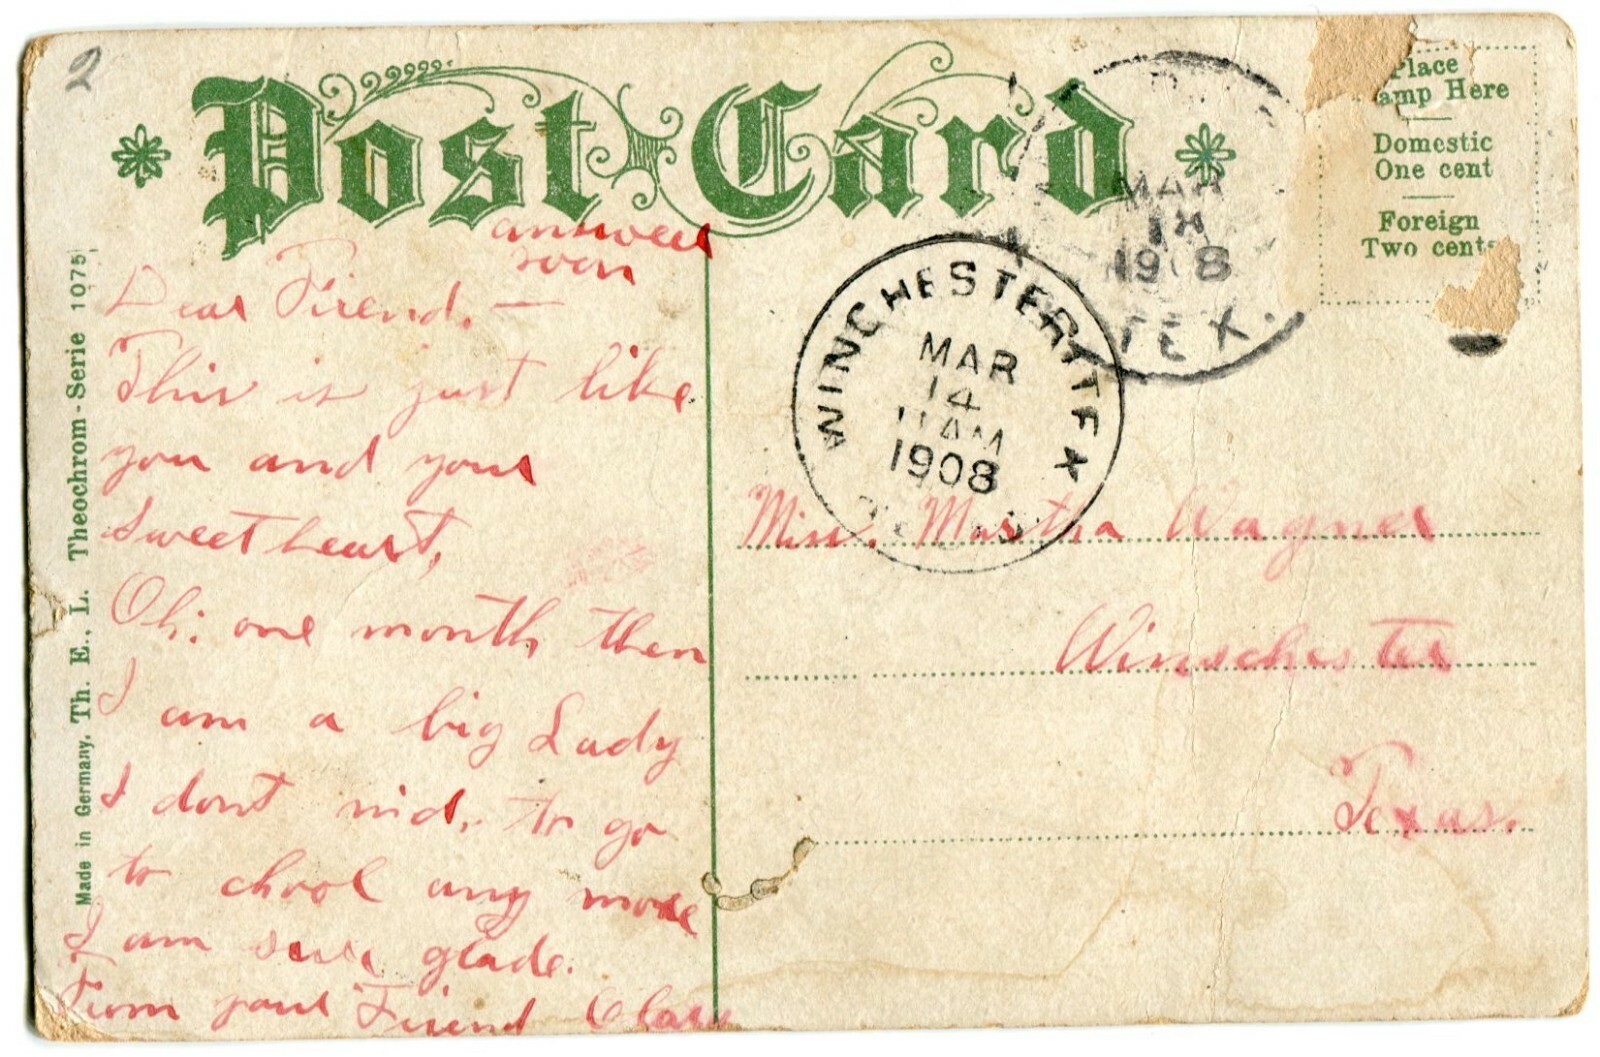 2
Post Card
Place
amp Here
Domestic
One cent
Foreign
Two cents
MAR
1908
TEX.
WINCHESTER TEX
MAR
14
11 AM
1908
answer
soon
Dear Friend. —
This is just like
you and your
Sweetheart,
Oh: one month then
I am a big Lady
I dont nid. to go
to chool any more
I am sure glade.
From your Friend
Miss. Martha Wagner
Winschester
Texas.
Made in Germany. Th. E., L. Theochrom-Serie 1075